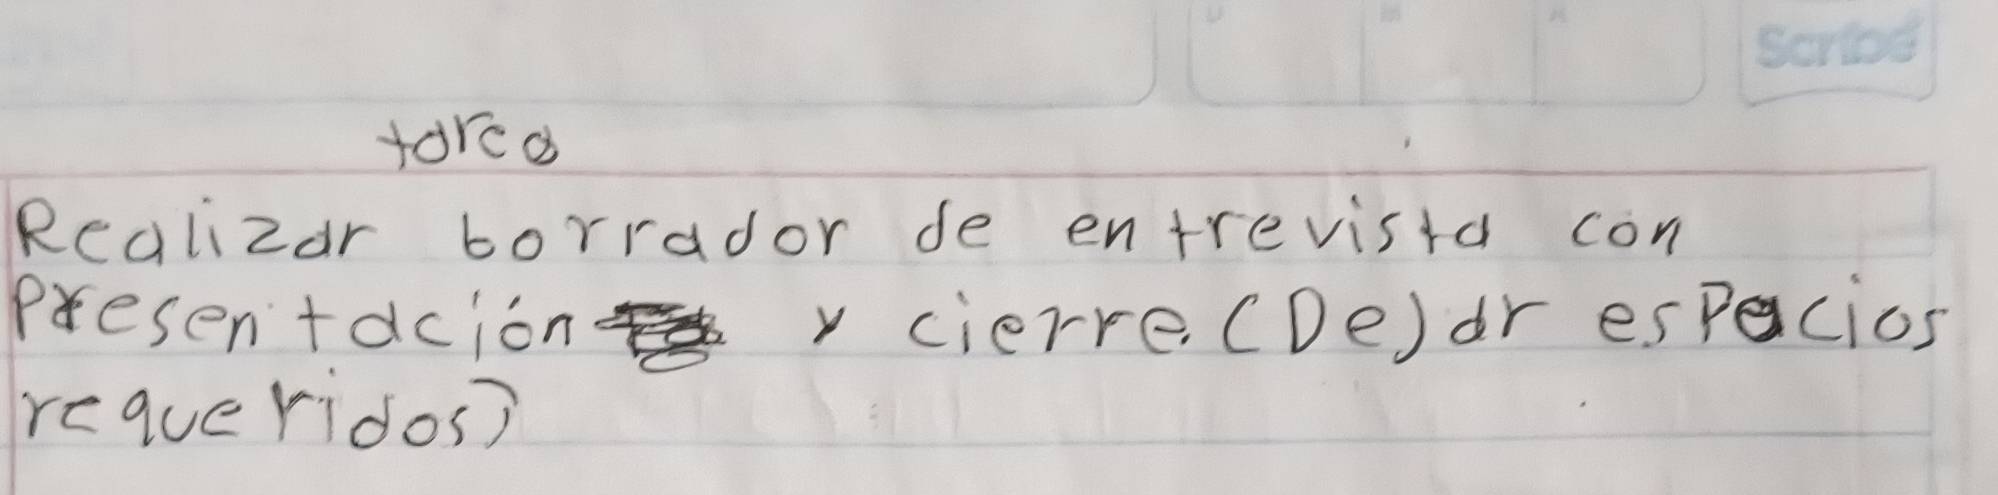 Scribe
tarea
Realizar borrador de entrevista con
Presentación y cierre. (Dejar espacios
requeridos)